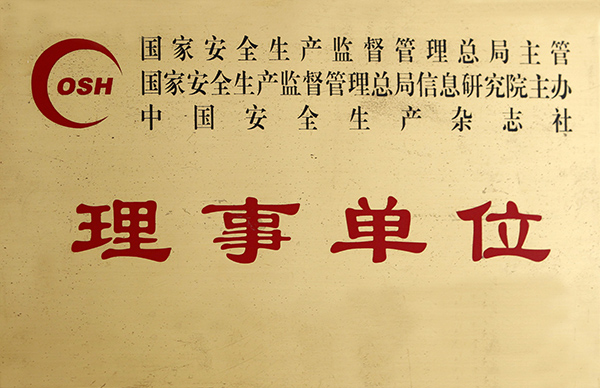 OSH
国家安全生产监督管理总局主管
国家安全生产监督管理总局信息研究院主办
中国安全生产杂志社
理事单位